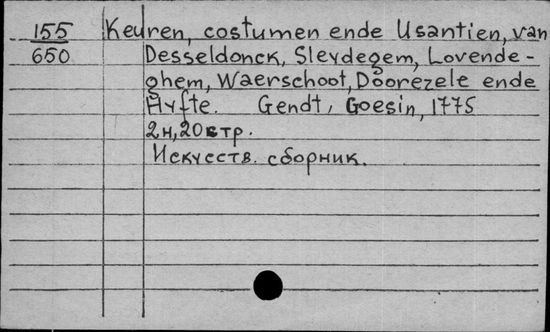 155 Keuren, costumen ende Usantien, van
650 Desseldonck, Sleydegem, Lovende-
ghem, Waerschoot, Doorezele ende
Hyfte. Gendt, Goesin, 1775
2н, 20 стр.
Искусств. сборник.